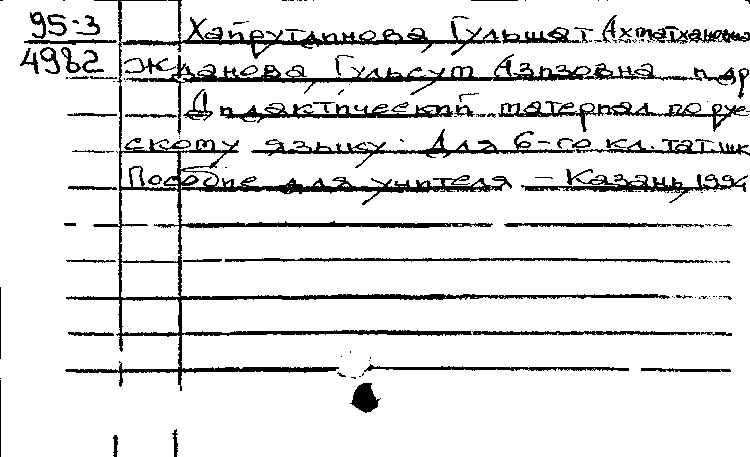 95-3
4982
Хайрутдинова, Гульшат Ахматхановна
Жданова, Гульсум Азизовна и др
Дидактический материал по рус
скому языку: Для 6-го кл. тат. шк
Пособие для учителя. - Казань, 1994